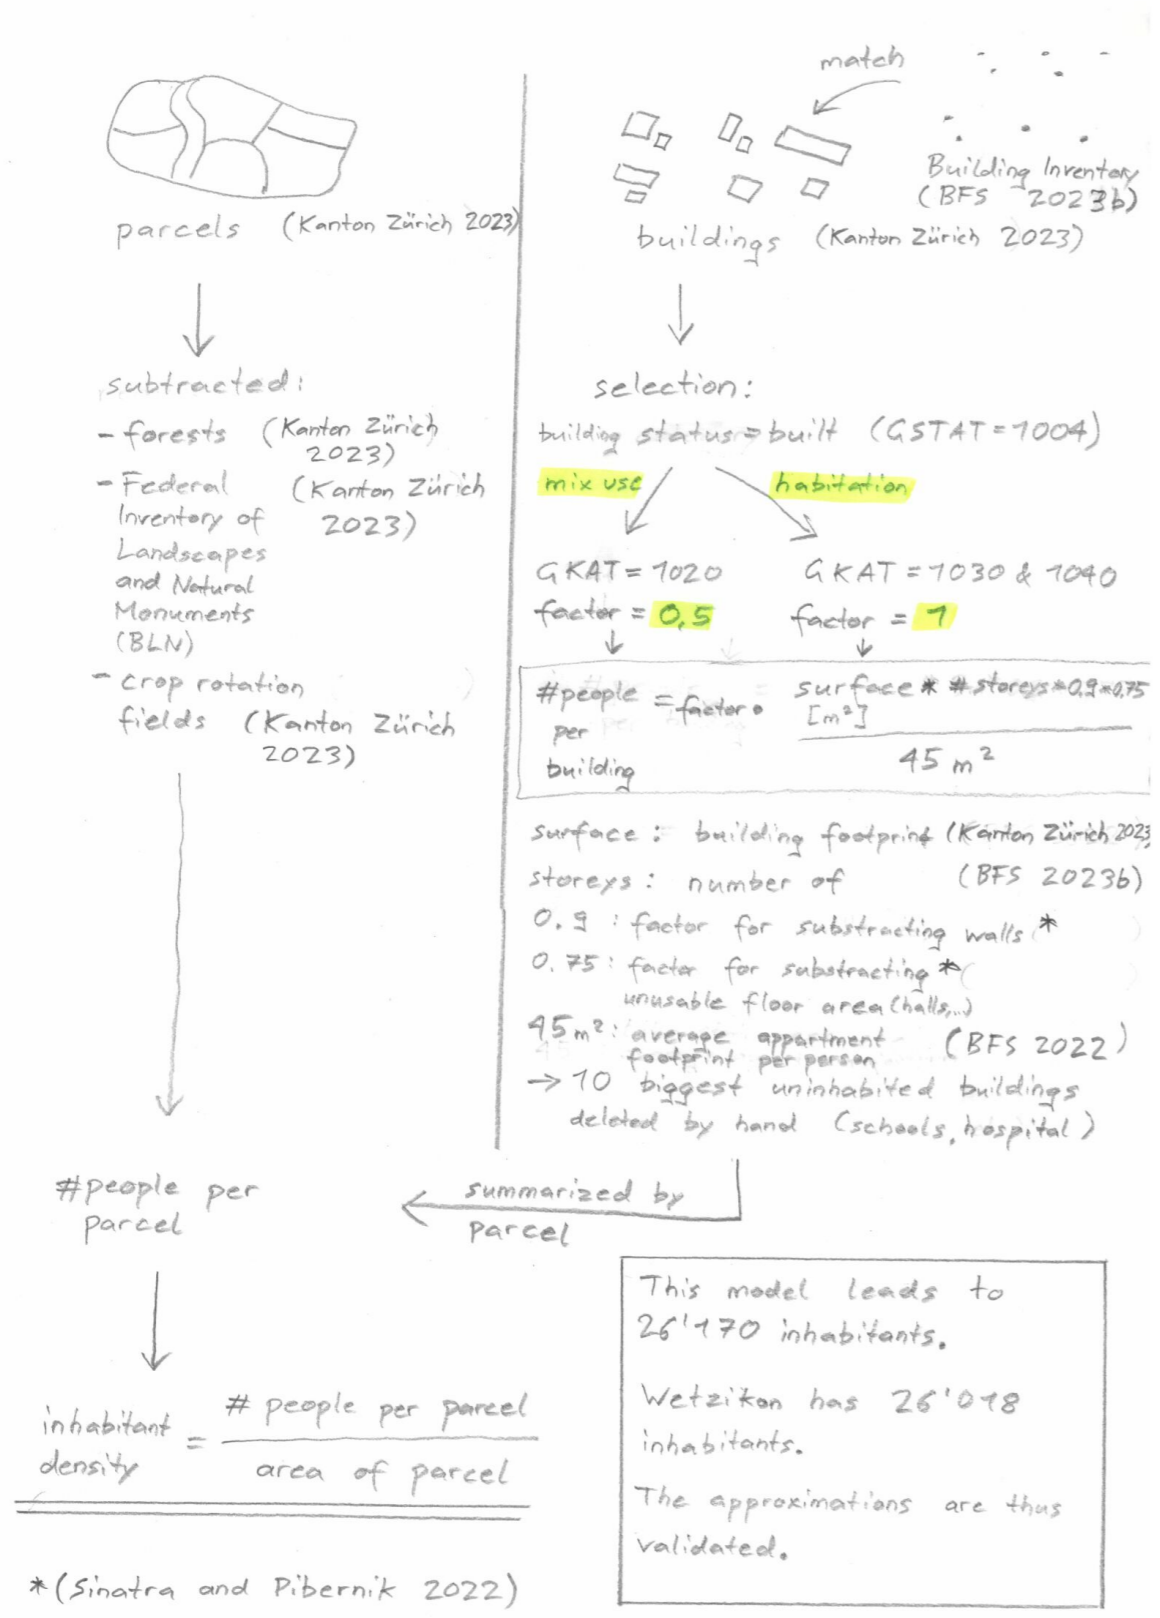 parcels (Kanton Zürich 2023)
subtracted:
- forests (Kanton Zürich
2023)
- Federal (Kanton Zürich
Inventory of 2023)
Landscapes
and Natural
Monuments
(BLN)
- crop rotation
fields (Kanton Zürich
2023)
match
Building Inventory
(BFS 2023b)
buildings (Kanton Zürich 2023)
selection:
building status = built (GSTAT = 1004)
mix use
habitation
GKAT = 1020
factor = 0,5
GKAT = 1030 & 1040
factor = 1
#people
per
building
= factor •
surface * #storeys * 0,9 * 0,75
[m²]
45 m²
surface: building footprint (Kanton Zürich 2023)
storeys: number of (BFS 2023b)
0.9: factor for substracting walls *
0.75: factor for substracting *
unusable floor area (halls,..)
45 m²: average appartment (BFS 2022)
footprint per person
→ 10 biggest uninhabited buildings
deleted by hand (schools, hospital)
summarized by
parcel
#people per
parcel
inhabitant
density
=
# people per parcel
area of parcel
*(Sinatra and Pibernik 2022)
This model leads to
26'170 inhabitants.
Wetzikon has 26'018
inhabitants.
The approximations are thus
validated.